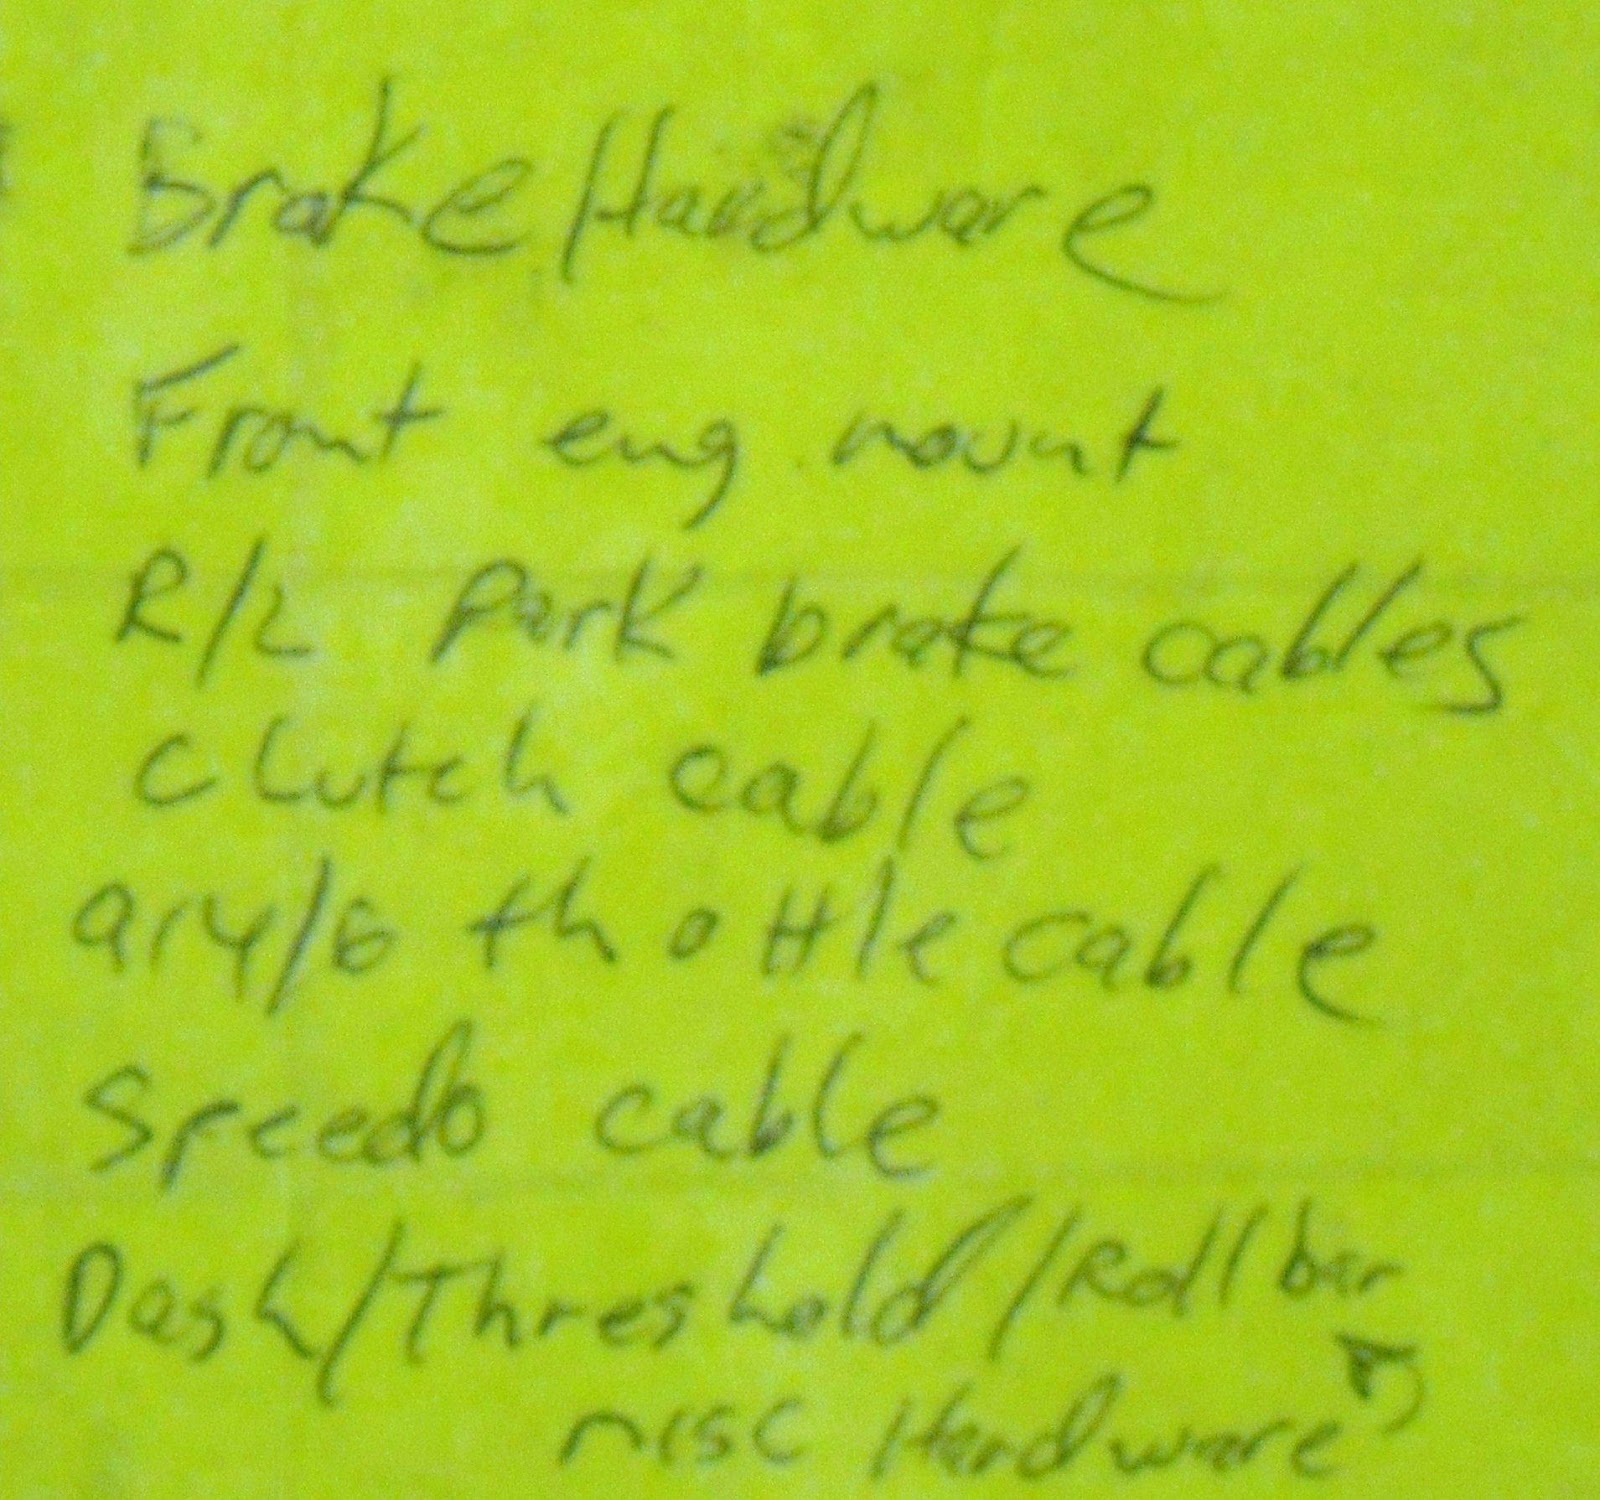 Brake/Hardware
Front eng mount
R/L Park brake cables
Clutch cable
throttle cable
Speedo cable
Dash/Threshold/Roll bar
misc Hardware